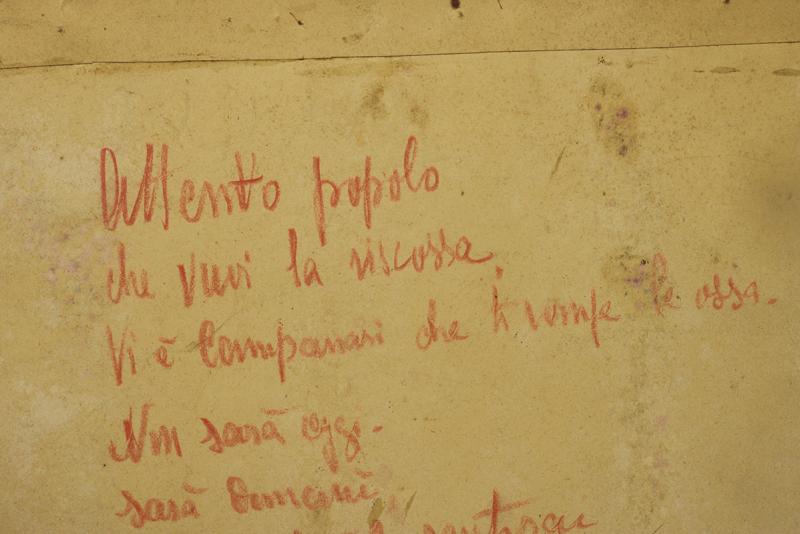 Attentto popolo
che vuoi la riscossa,
Vi è Campanari che ti rompe le ossa.
Non sarà oggi.
sarà domani,